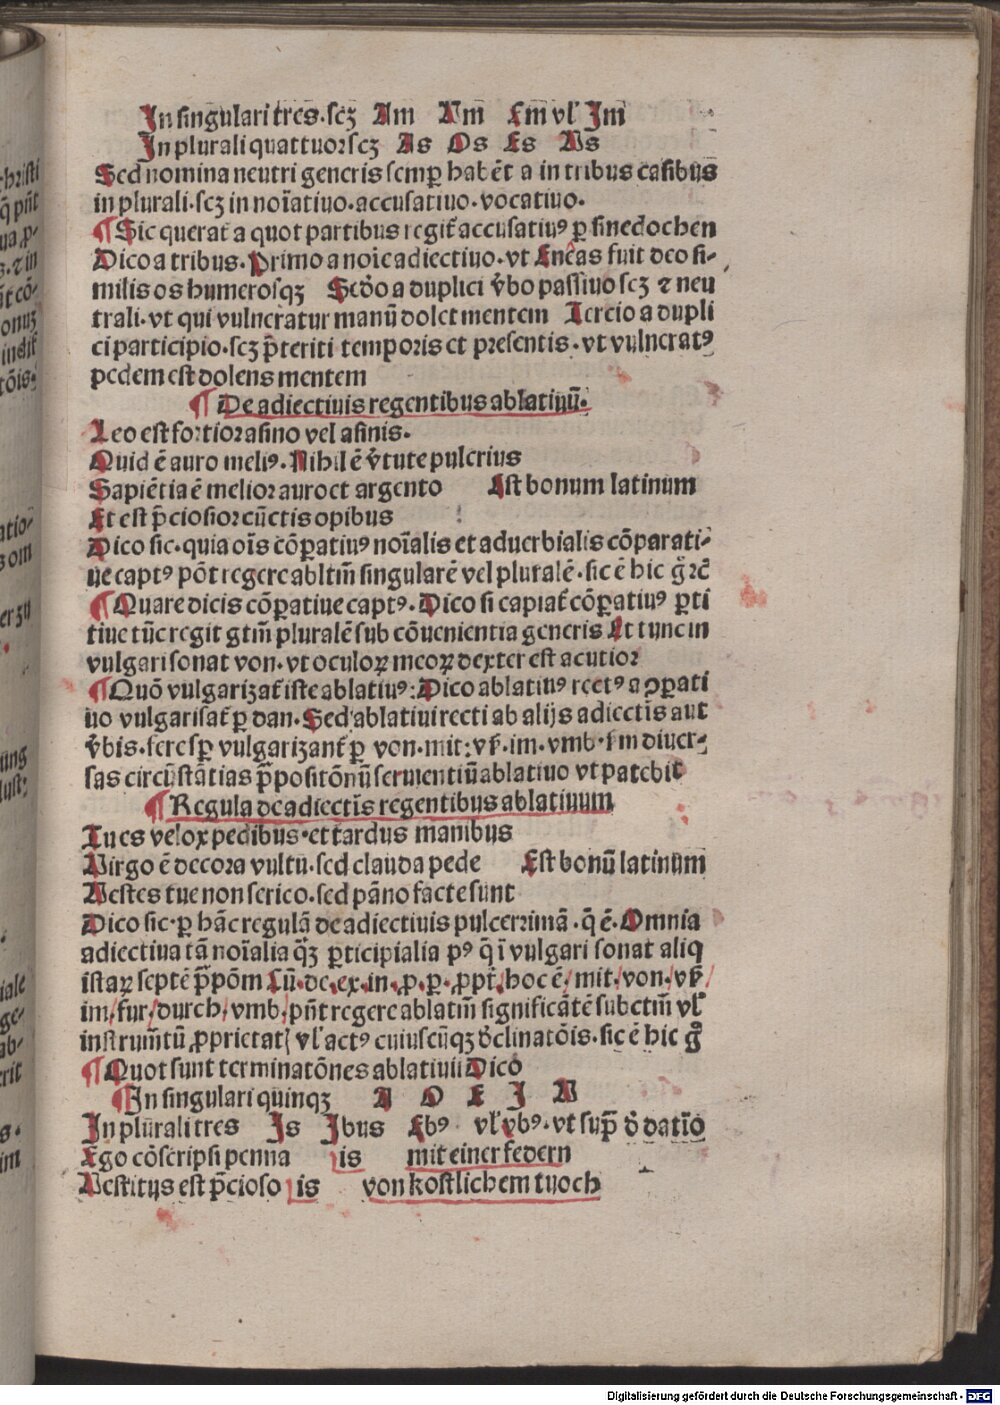 In singulari tres·scꝫ Am Vm Em̄ vl' Im̄
In plurali quattuor scꝫ As Os Es Vs
Sed nomina neutri generis semꝑ habēt a in tribus casibus
in plurali·scꝫ in noīatiuo·accusatiuo·vocatiuo·
¶ Sic querat̄ a quot partibus regit̄ accusatiuꝰ ꝑ sinedochen
Dico a tribus·Primo a noīe adiectiuo·vt Eneas fuit deo si⸗
milis os humerosqꝫ Scd̄o a duplici v̄bo passiuo scꝫ ⁊ neu
trali·vt qui vulneratur manū dolet mentem Tercio a dupli
ci participio·scꝫ p̄teriti temporis et presentis·vt vulneratꝰ
pedem est dolens mentem
¶ De adiectiuis regentibus ablatiuū·
Leo est fortior asino vel asinis·
Quid ē auro meliꝰ·Nihil ē v̄tute pulcrius
Sapiētia ē melior auro et argento Est bonum latinum
Et est p̄ciosior cūctis opibus
Dico sic·quia oīs cōꝑatiuꝰ noīalis et aduerbialis cōparati⸗
ue captꝰ pōt regere abltm̄ singularē vel pluralē·sic ē hic g̊ rc̄
¶ Quare dicis cōꝑatiue captꝰ·Dico si capiat̄ cōꝑatiuꝰ ꝑti
tiue tūc regit gtm̄ pluralē sub cōuenientia generis Et tunc in
vulgari sonat von·vt oculoꝝ meoꝝ dexter est acutior
¶ Quō vulgarizat̄ iste ablatiuꝰ:Dico ablatiuꝰ rectꝰ a ꝯꝑati
uo vulgarisat̄ ꝑ dan·Sed ablatiui recti ab alijs adiectīs aut
v̄bis·fere sꝑ vulgarizant̄ ꝑ von·mit:vf̄·im·vmb·fm̄ diuer⸗
sas circūstātias p̄positōnū seruientiū ablatiuo vt patebit
¶ Regula de adiectīs regentibus ablatiuum
Tu es velox pedibus·et tardus manibus
Virgo ē decora vultu·sed clauda pede Est bonū latinum
Vestes tue non serico·sed pāno facte sunt
Dico sic·ꝑ hāc regulā de adiectiuis pulcerrimā·q̄ ē·Omnia
adiectiua tā noīalia q̄ꝫ ꝑticipialia pꝰ q̄ ī vulgari sonat aliq
istaꝝ septē p̄pōm Cū·de·ex·in·ꝓ·ꝑ·ꝓpt̄·hoc ē/mit/von/vf̄/
im/fur/durch/vmb/pn̄t regere ablatm̄ significātē subctm̄ vl'
instrum̄tū ꝓprietat⸗ vl' actꝰ cuiuscūqꝫ d̓clinatōis·sic ē hic g̊
¶ Quot sunt terminatōnes ablatiui Dico
¶ In singulari quinqꝫ A O E I V
In plurali tres Is Ibus Ebꝰ vl' vbꝰ·vt sup̄ d̓ datīo
Ego cōscripsi penna is mit einer federn
Vestitus est p̄cioso is von kostlichem tuoch
Digitalisierung gefördert durch die Deutsche Forschungsgemeinschaft - DFG